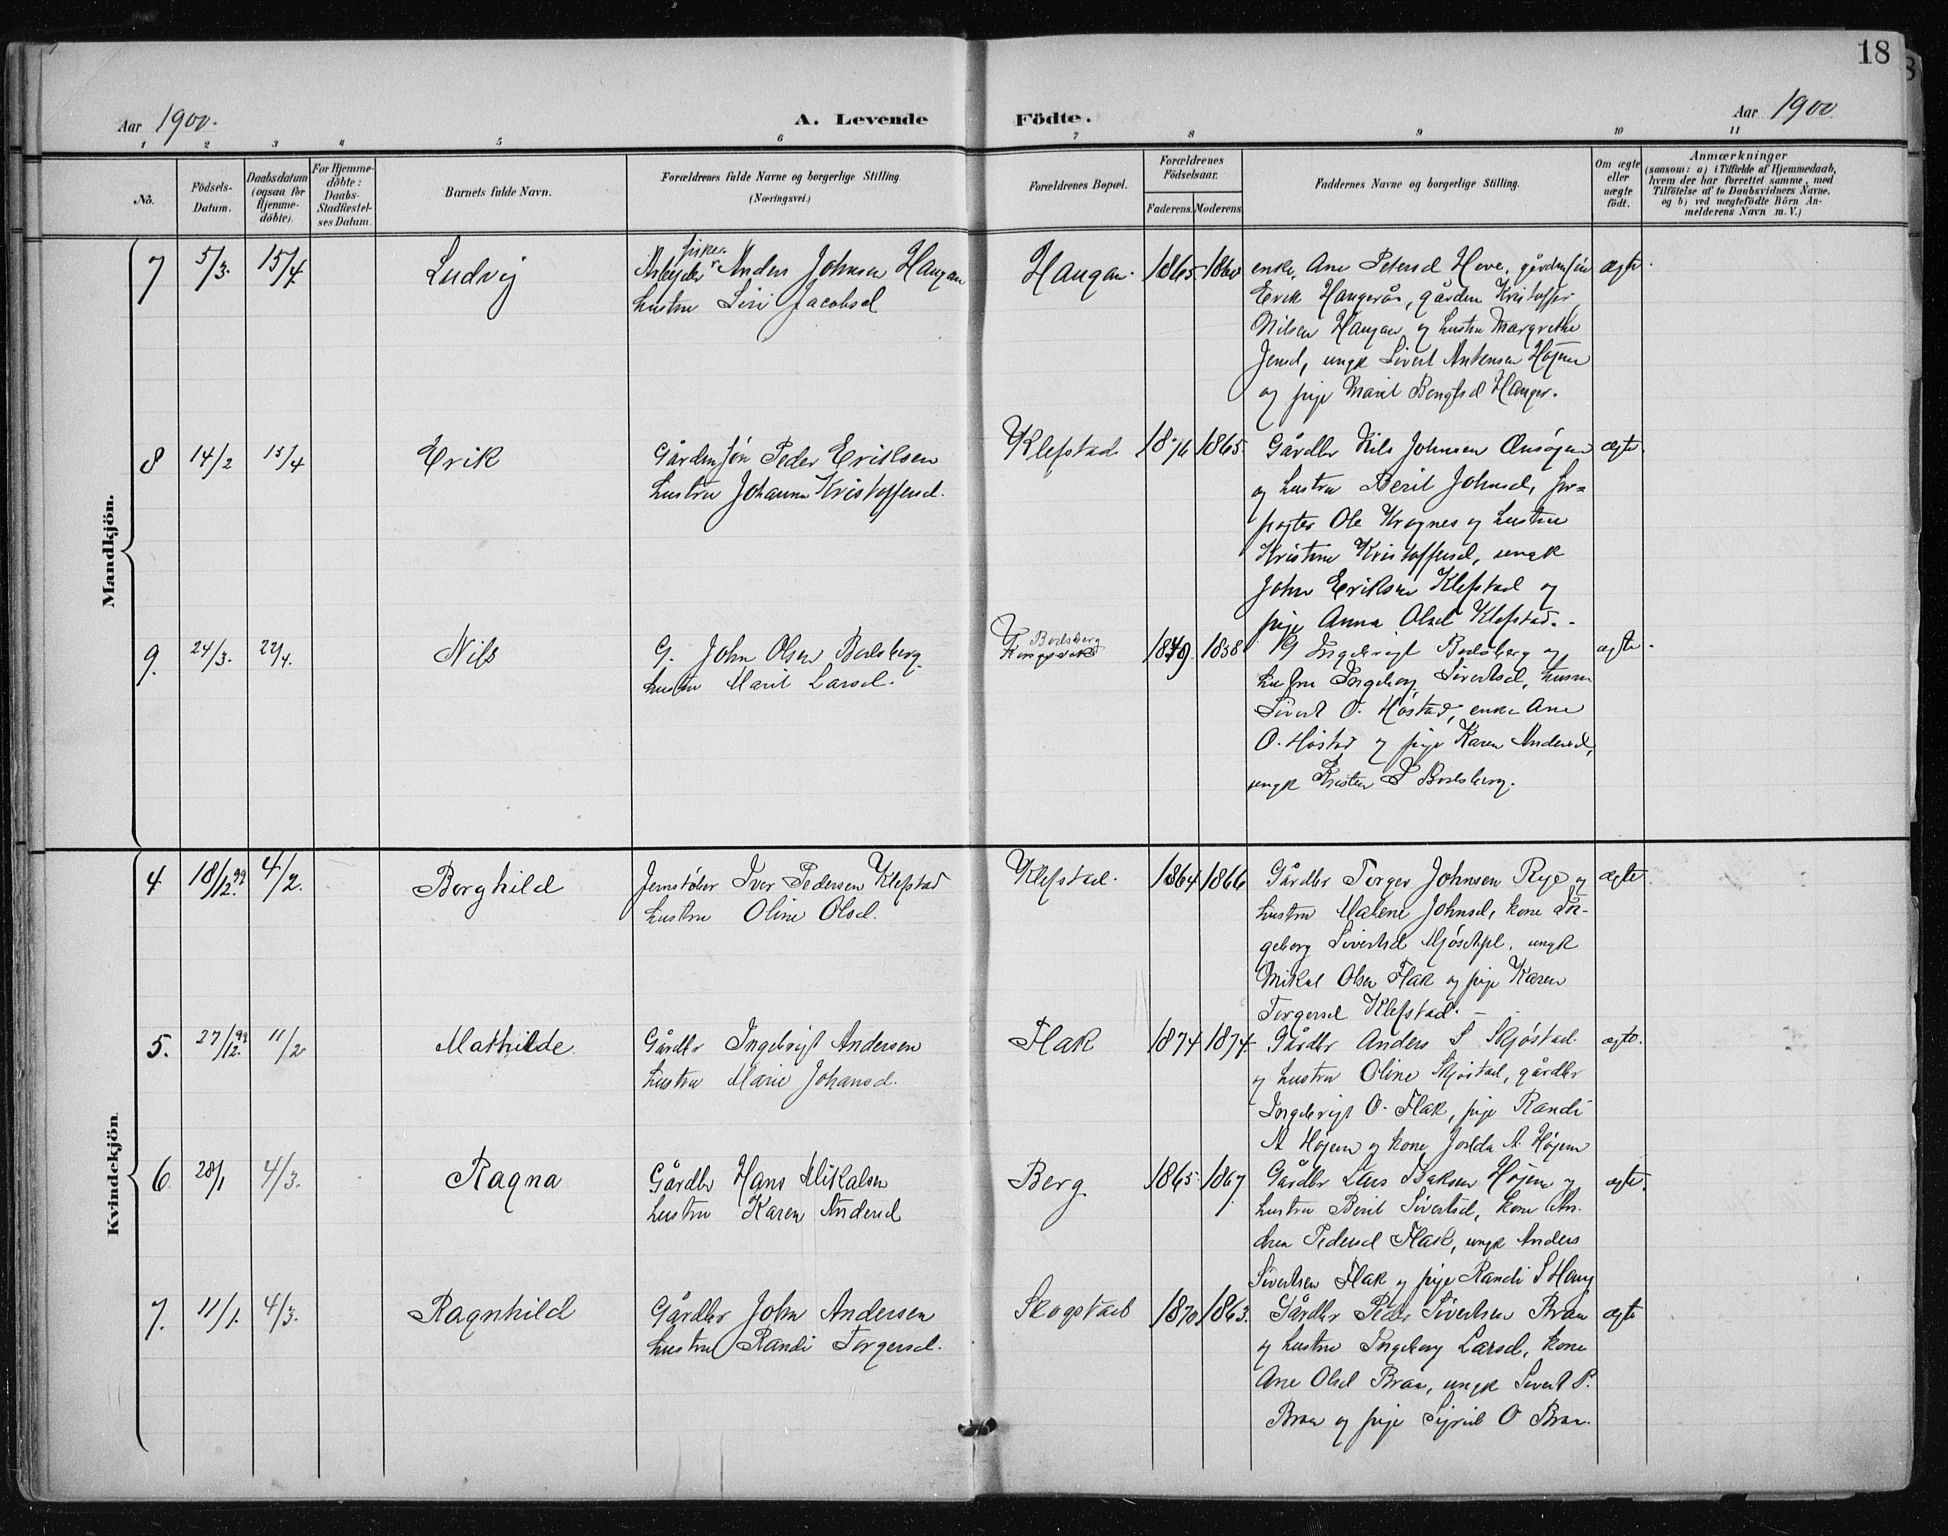 18
Aar 1900.
A. Levende Födte.
Aar 1900
1 2 3 4 5 6 7 8 9 10 11
No.
Födsels-
Datum.
Daabsdatum
(ogsaa for
Hjemme-
döbte).
For Hjemme-
döbte:
Daabs-
Stadfæstel-
ses Datum.
Barnets fulde Navn.
Forældrenes fulde Navne og borgerlige Stilling.
(Næringsvei.)
Forældrenes Bopæl.
Forældrenes
Födselsaar.
Faderens. Moderens.
Faddernes Navne og borgerlige Stilling.
Om ægte
eller
uægte
födt.
Anmærkninger
(saasom: a) i Tilfælde af Hjemmedaab,
hvem der har forrettet samme, med
Tilföielse af to Daabsvidners Navne,
og b) ved uægtefödte Börn An-
melderens Navn m. V.)
Mandkjön.
7 5/3. 15/4. Ludvig
Arbeider Anders Johnsen Haugan
hustru Siri Jacobsd
Haugan. 1865 1860
enke Ane Petersd Hove, gårdmsøn
Erik Haugerås, gårdm Kristoffer
Nilsen Haugan og hustru Margrethe
Jensd, ungk Sivert Antonsen Højem
og pige Marit Bengtsd Hauger.
ægte.
8 14/2 15/4 Erik
Gårdmsøn Peder Eriksen
hustru Johanna Kristoffersd.
Klefstad 1876 1865
Gårdbr Nils Johnsen
og hustru Berit Johnsd, for-
pagter Ole Krognes og hustru
Kristine Kristoffersd, ungk
John Eriksen Klefstad og
pige Anna Olsd Klefstad.
ægte.
9. 24/3. 22/4. Nils
G. John Olsen Bodsberg
hustru Marit Larsd.
Bodsberg 1858
G Ingebrigt Bodsberg og
hustru Ingeborg Sivertsd, husm
Sivert O. Høstad, enke Ane
O. Høstad og pige Karen Andersd,
ungk Kristen S Bodsberg.
ægte.
Kvindekjön.
4 18/12.99 4/2. Borghild
Jernstøber Iver Pedersen Klefstad
hustru Oline Olsd.
Klefstad. 1864 1866
Gårdbr Torger Johnsen Rye og
hustru Malene Johnsd, kone In-
geborg Sivertsd, ungk
Mikal Olsen Flak og pige Karen
Torgersd Klefstad.
ægte.
5. 27/12.99 11/2 Mathilde
Gårdbr Ingebrigt Andersen
hustru Marie Johansd.
Flak 1874 1874.
Gårdbr Anders S Skjøstad
og hustru Oline Skjøstad, gårdbr
Ingebrigt O. Flak, pige Randi
A Højem og kone A. Højem
ægte.
6. 28/1 4/3. Ragna
Gårdbr Hans Mikalsen
hustru Karen Andersd
Berg 1865 1867
Gårdbr Lars Isaksen Højem og
hustru Berit Sivertsd, kone An-
drea Pedersd Flak, ungk Anders
Sivertsen Flak og pige Randi S Haug
ægte.
7. 11/1. 4/3. Ragnhild
Gårdbr John Andersen
hustru Randi Torgersd.
Skogstad 1870 1863.
Gårdbr Peder Sivertsen Braa
og hustru Ingeborg Larsd, kone
Ane Olsd Braa, ungk Sivert P.
Braa og pige Sigrid O Braa.
ægte